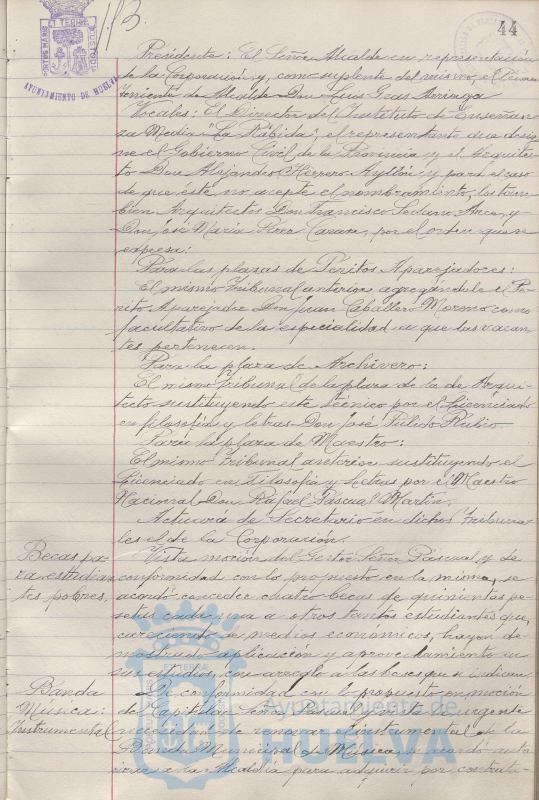 44
Presidente: El Señor Alcalde en representación
de la Corporación y, como suplente del mismo, el Tenien
te de Alcalde Don Luis Geas Arriaga
Vocales: El Director del Instituto de Enseñan
za Media "La Rábida", el representante que desig
ne el Gobierno Civil de la Provincia y el Arquitec
to Don Alejandro Herrero Ayllón y para el caso
de que éste no acepte el nombramiento, los tam
bién Arquitectos Don Francisco Sedano Arce, y
Don José María Pérez Carasa, por el orden que se
expresa:
Para las plazas de Peritos Aparejadores:
El mismo Tribunal anterior agregándole el Pe
rito Aparejador Don Juan Caballero Moreno como
facultativo de la especialidad a que las vacan
tes pertenecen.
Para la plaza de Archivero:
El mismo Tribunal de la plaza de la de Arqui
tecto sustituyendo este técnico por el Licenciado
en filosofía y letras Don José Pulido Rubio
Para la plaza de Maestro:
El mismo Tribunal anterior sustituyendo el
Licenciado en Filosofía y Letras por el Maestro
Nacional Don Rafael Pascual Martín.
Actuará de Secretario en dichos Tribuna
les el de la Corporación.
Becas pa
ra estudian
tes pobres.
Vista moción del Gestor Señor Pascual y de
conformidad con lo propuesto en la misma, se
acordó conceder cuatro becas de quinientas pe
setas cada una a otros tantos estudiantes que,
careciendo de medios económicos, hayan de
mostrado aplicación y aprovechamiento en
sus estudios, con arreglo a las bases que se indican.
Banda
Música:
Instrumental
De conformidad con lo propuesto en moción
del Capitular Señor y vista la urgente
necesidad de renovar el instrumental de la
Banda Municipal de Música, se acordó auto
rizar a la Alcaldía para adquirir por contrata-
AYUNTAMIENTO DE HUELVA
Ayuntamiento de
HUELVA